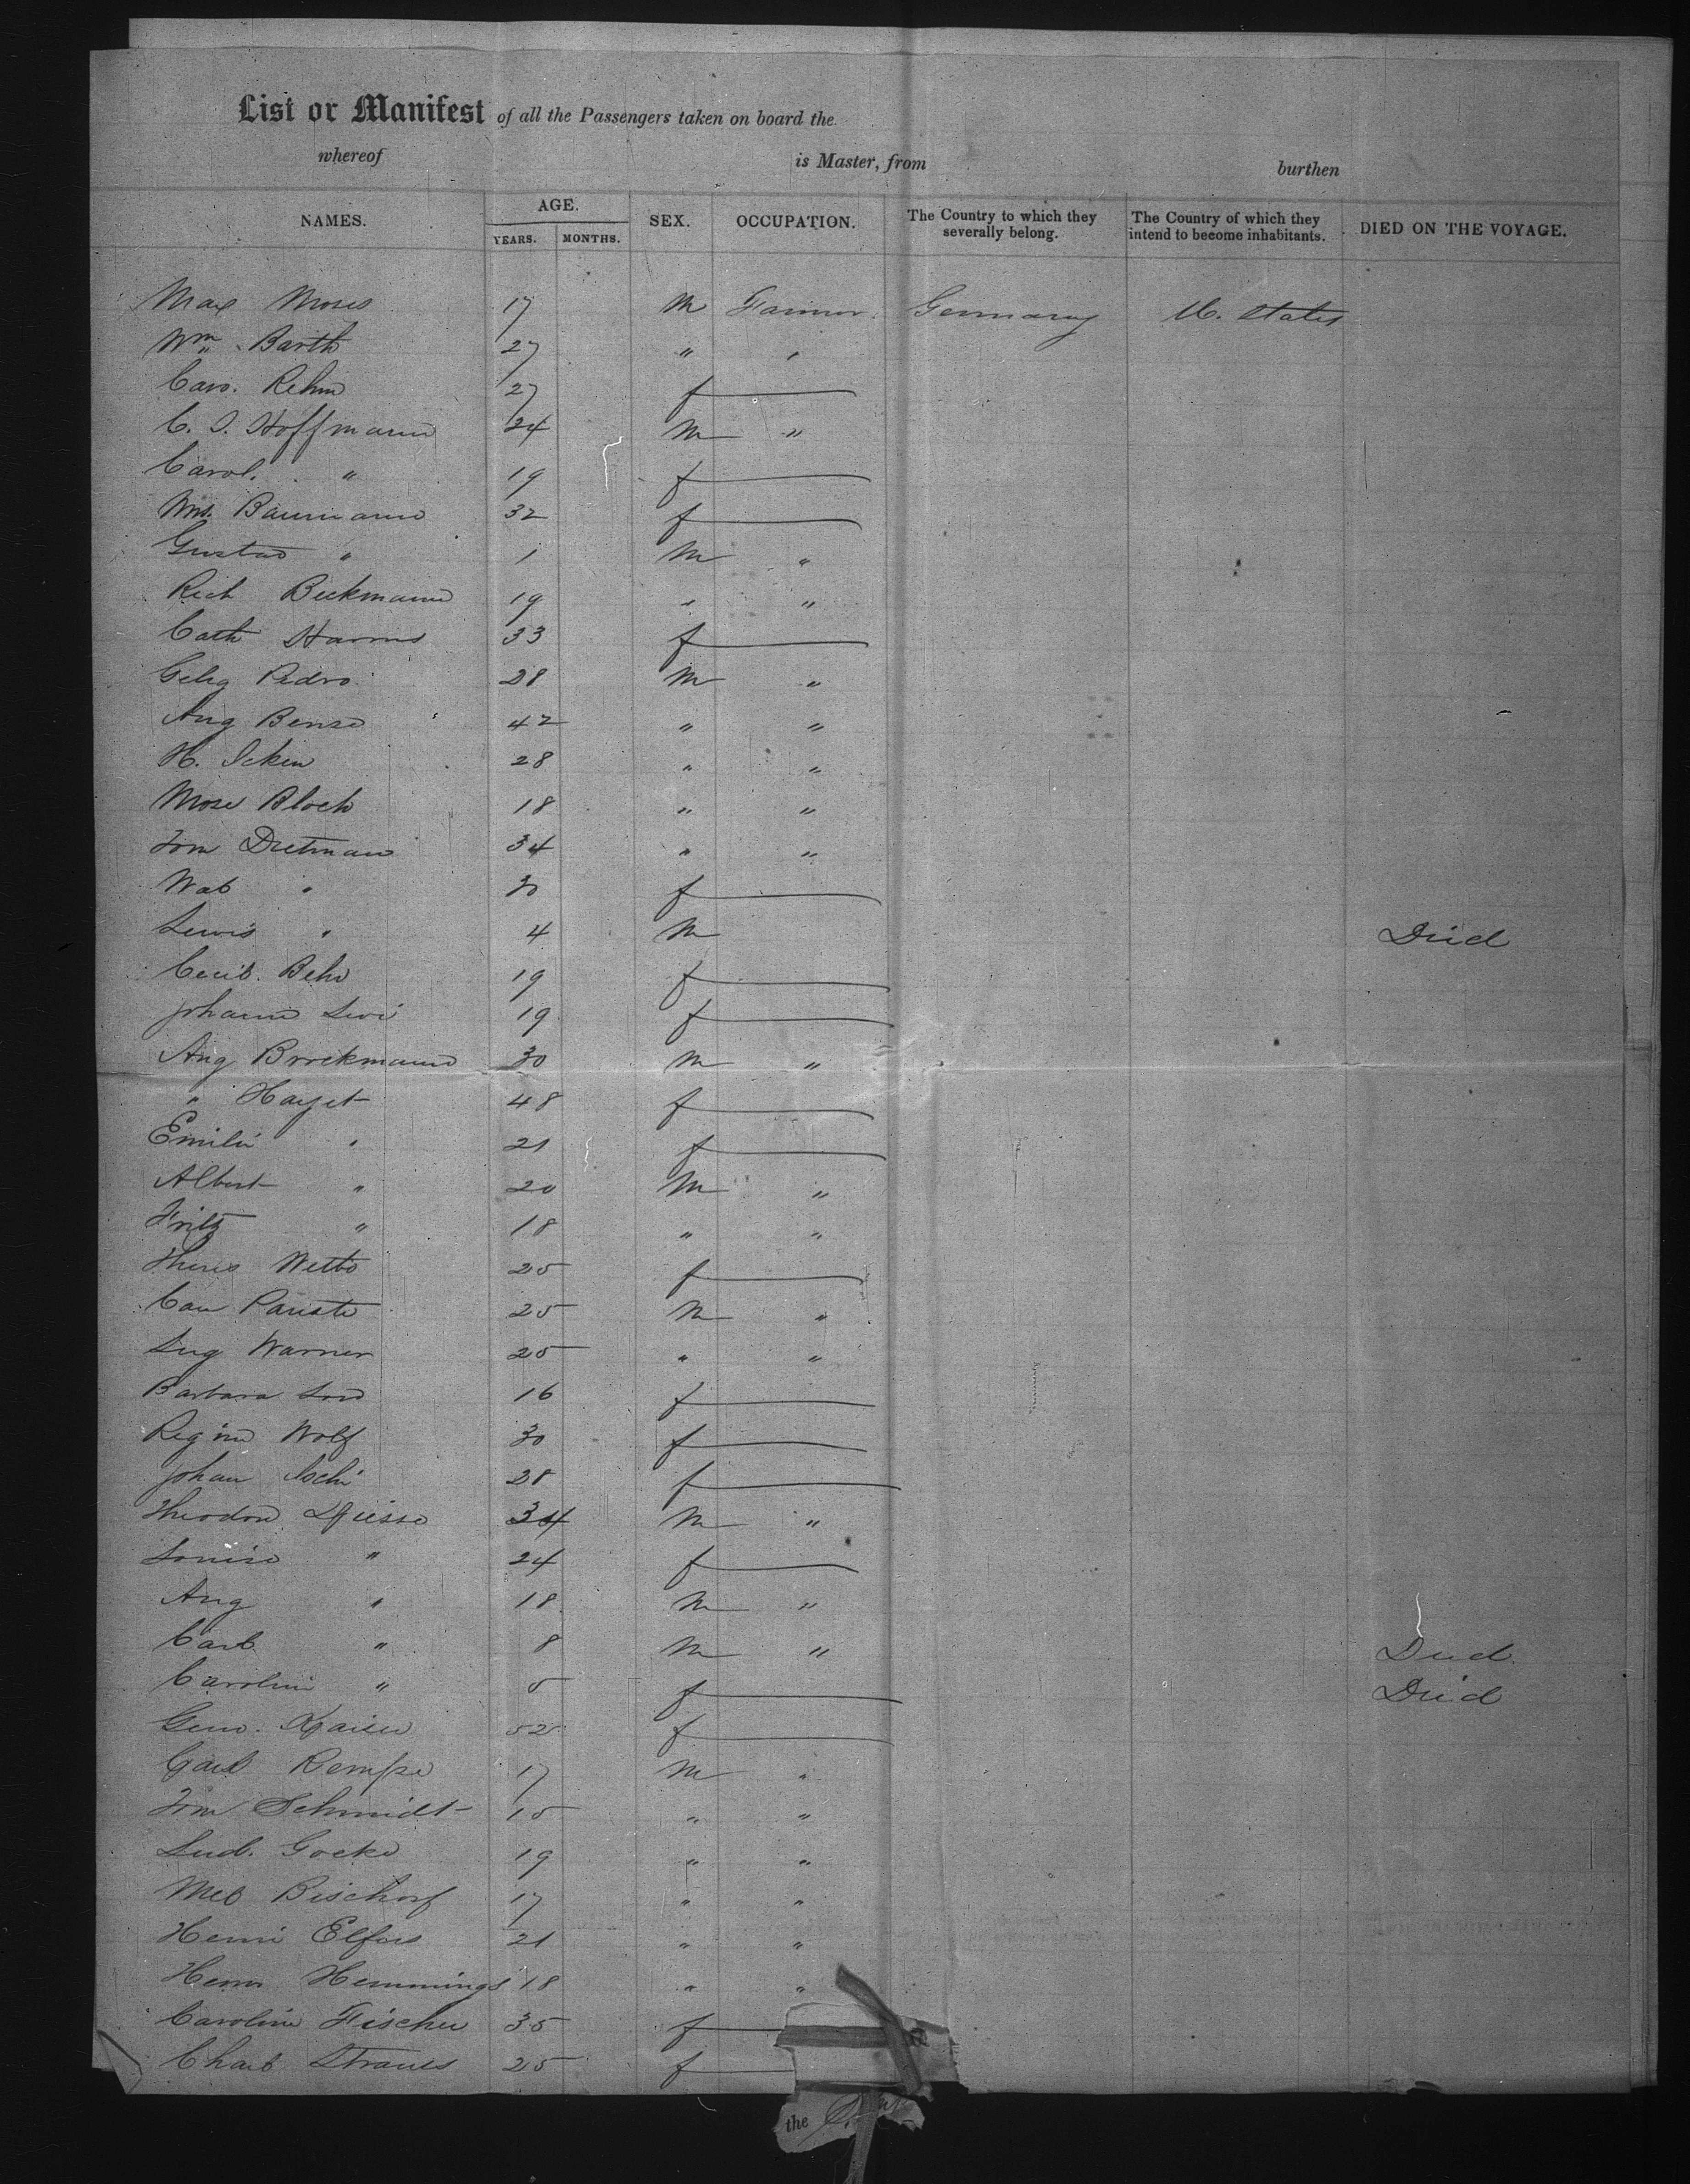 List or Manifest of all the Passengers taken on board the
whereof is Master, from burthen
NAMES. AGE. YEARS. MONTHS. SEX. OCCUPATION. The Country to which they severally belong. The Country of which they intend to become inhabitants. DIED ON THE VOYAGE.
Max Moses 17 M Farmer Germany U. States
Wm Barth 27 " "
Caro. Rehm 27 f
C. I. Hoffmann 24 M "
Carol. " 19 f
Mrs. Baumann 32 f
Gustav " 1 M "
Rich Beckmann 19 " "
Cath Harms 33 f
Pedro 28 M "
Aug Bense 42 " "
H. Icken 28 " "
Mose Bloch 18 " "
Dietman 34 " "
" 30 f
Lewis " 4 M Died
Behr 19 f
Johann Levi 19 f
Aug Brockmann 30 M "
" Hayet 48 f
Emilie " 21 f
Albert " 20 M "
Fritz " 18 " "
Theres 25 f
25 M "
Warner 25 " "
Barbara 16 f
Regine Wolf 30 f
Johan 28 f
Theodore 34 M "
Louise " 24 f
Aug " 18 M "
Carl " 8 M " Died
Carolin " 5 f Died
Kaiser 52 f
Carl Rempe 17 M "
Schmidt 15 " "
Lud. Gocke 19 " "
Bischof 17 " "
Henri Elfers 21 " "
Herm Hemmings 18 " "
Caroline Fischer 35 f
Strauss 25 f
the